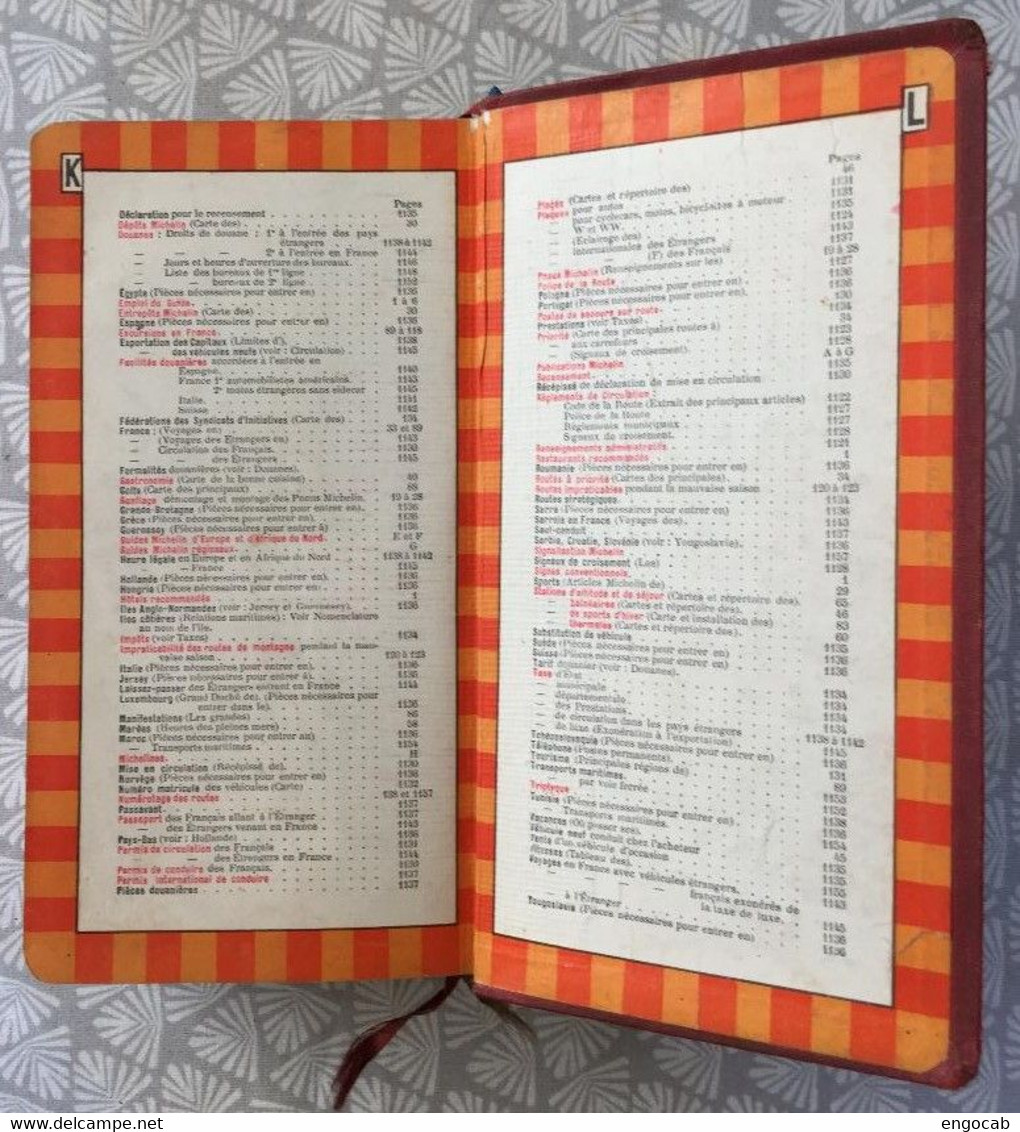 K
Pages
Déclaration pour le recensement 1135
Dépôts Michelin (Carte des) 30
Douanes : Droits de douane : 1° à l'entrée des pays
étrangers 1138 à 1142
— — 2° à l'entrée en France 1144
— Jours et heures d'ouverture des bureaux. 1146
— Liste des bureaux de 1re ligne 1148
— — bureaux de 2e ligne 1152
Égypte (Pièces nécessaires pour entrer en) 1136
Emploi du Guide. 1 à 6
Entrepôts Michelin (Carte des) 30
Espagne (Pièces nécessaires pour entrer en) 1136
Excursions en France. 89 à 118
Exportation des Capitaux (Limites d'). 1138
— des véhicules neufs (voir : Circulation) 1145
Facilités douanières accordées à l'entrée en
Espagne.
France 1° automobilistes américains.
2° motos étrangères sans sidecar
Italie.
Suisse 1142
Fédérations des Syndicats d'Initiatives (Carte des)
France : (Voyages en) 33 et 89
— (Voyages des Étrangers en) 1143
— Circulation des Français. 1130
— — des Étrangers 1145
Formalités douanières (voir : Douanes).
Gastronomie (Carte de la bonne cuisine) 40
Golfs (Carte des principaux) 88
Gonflage démontage et montage des Pneus Michelin. 19 à 28
Grande-Bretagne (Pièces nécessaires pour entrer en). 1136
Grèce (Pièces nécessaires pour entrer en) 1136
Guernesey (Pièces nécessaires pour entrer à) 1136
Guides Michelin d'Europe et d'Afrique du Nord. E et F
Guides Michelin régionaux. G
Heure légale en Europe et en Afrique du Nord 1138 à 1142
— France 1145
Hollande (Pièces nécessaires pour entrer en). 1136
Hongrie (Pièces nécessaires pour entrer en) 1136
Hôtels recommandés 1
Iles Anglo-Normandes (voir : Jersey et Guernesey). 1136
Iles côtières (Relations maritimes) : Voir Nomenclature
au nom de l'île.
Impôts (voir Taxes) 1134
Impraticabilité des routes de montagne pendant la mau-
vaise saison 120 à 123
Italie (Pièces nécessaires pour entrer en) 1136
Jersey (Pièces nécessaires pour entrer à). 1136
Laissez-passer des Étrangers entrant en France 1144
Luxembourg (Grand Duché de). (Pièces nécessaires pour
entrer dans le). 1136
Manifestations (Les grandes) 86
Marées (Heures des pleines mers) 58
Maroc (Pièces nécessaires pour entrer au) 1136
— Transports maritimes 1154
Michelines. H
Mise en circulation (Récépissé de). 1130
Norvège (Pièces nécessaires pour entrer en) 1136
Numéro matricule des véhicules (Carte) 1132
Numérotage des routes 138 et 1157
Passavant. 1137
Passeport des Français allant à l'Étranger 1137
— des Étrangers venant en France 1143
Pays-Bas (voir : Hollande) 1136
Permis de circulation des Français 1131
— — des Étrangers en France. 1144
Permis de conduire des Français. 1130
Permis international de conduire 1137
Pièces douanières 1137
L
Pages
Plages (Cartes et répertoire des) 46
Plaques pour autos 1131
— pour cyclecars, motos, bicyclettes à moteur 1131
— W et WW. 1135
— (Éclairage des) 1124
— internationales des Étrangers 1143
— — (F) des Français 1137
Pneus Michelin (Renseignements sur les) 19 à 28
Police de la Route 1127
Pologne (Pièces nécessaires pour entrer en). 1136
Portugal (Pièces nécessaires pour entrer en). 1136
Postes de secours sur route. 130
Prestations (voir Taxes) 1134
Priorité (Carte des principales routes à) 34
— aux carrefours 1123
— (Signaux de croisement). 1128
Publications Michelin A à G
Recensement. 1135
Récépissé de déclaration de mise en circulation 1130
Règlements de Circulation :
Code de la Route (Extrait des principaux articles) 1122
Police de la Route 1127
Règlements municipaux 1127
Signaux de croisement. 1128
Renseignements administratifs 1121
Restaurants recommandés 1
Roumanie (Pièces nécessaires pour entrer en) 1136
Routes à priorité (Cartes des principales). 34
Routes impraticables pendant la mauvaise saison 120 à 123
Routes stratégiques. 1134
Sarre (Pièces nécessaires pour entrer en) 1136
Sarrois en France (Voyages des). 1143
Sauf-conduit 1137
Serbie, Croatie, Slovénie (voir : Yougoslavie). 1136
Signalisation Michelin 1157
Signaux de croisement (Les) 1128
Signes conventionnels.
Sports (Articles Michelin de) 1
Stations d'altitude et de séjour (Cartes et répertoire des). 29
— balnéaires (Cartes et répertoire des). 65
— de sports d'hiver (Carte et installation des) 46
— thermales (Cartes et répertoire des). 83
Substitution de véhicule 60
Suède (Pièces nécessaires pour entrer en) 1135
Suisse (Pièces nécessaires pour entrer en) 1136
Tarif douanier (voir : Douanes). 1136
Taxe d'État
— municipale 1134
— départementale 1134
— des Prestations 1134
— de circulation dans les pays étrangers 1134
— de luxe (Exonération à l'exportation) 1138 à 1142
Tchécoslovaquie (Pièces nécessaires pour entrer en) 1145
Téléphone (Postes permanents). 1136
Tourisme (Principales régions de) 131
Transports maritimes. 89
— par voie ferrée 1153
Triptyque 1152
Tunisie (Pièces nécessaires pour entrer en) 1138
— Transports maritimes. 1136
Vacances (Où passer ses). 1154
Véhicule neuf conduit chez l'acheteur 45
Vente d'un véhicule d'occasion 1135
Vitesses (Tableau des). 1135
Voyages en France avec véhicules étrangers. 1155
— — — français exonérés de 1143
la taxe de luxe.
— à l'Étranger 1145
Yougoslavie (Pièces nécessaires pour entrer en) 1136
1136
www.delcampe.net
engocab